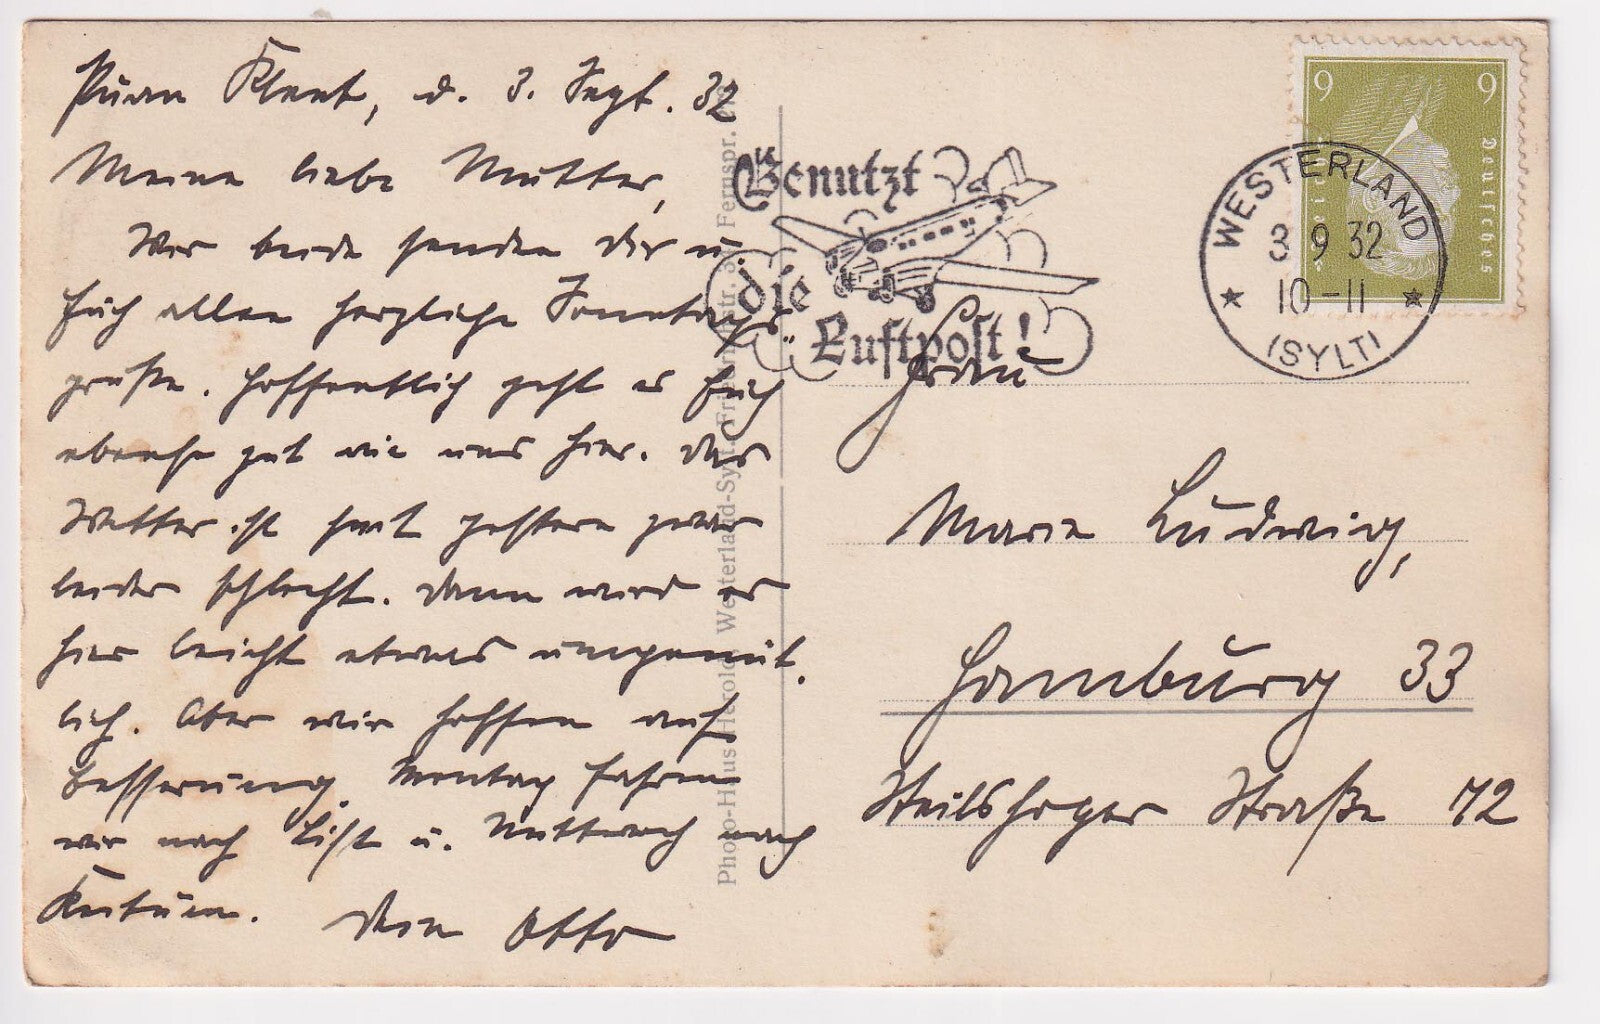 Puan Klent, d. 3. Sept. 32
Meine liebe Mutter,
Wir beide senden Dir u.
Euch allen herzliche Sonntags-
grüße. Hoffentlich geht es Euch
ebenso gut wie uns hier. Das
Wetter ist seit gestern zwar
leider schlecht. Dann wird es
hier leicht etwas ungemüt-
lich. Aber wir hoffen auf
Besserung. Montag fahren
wir nach List u. Mittwoch nach
Keitum. Dein Otto
Photo-Haus Herold, Westerland-Sylt, Fernspr.
Benutzt
die
Luftpost!
WESTERLAND
3 9 32
10-11
(SYLT)
9 9
Deutsches
Frau
Marie Ludwig,
Hamburg 33
Steilshoper Straße 72